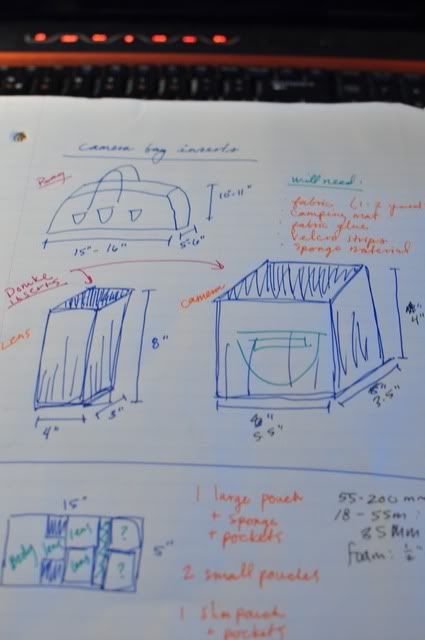 Camera bag inserts
will need:
fabric (1-2 yard
camping mat
fabric glue
velcro strips
sponge material
10-11"
15"-16"
5-6"
Domke inserts
camera
Lens
8"
4"
4"
3"
3.5"
5.5"
15"
5"
Body
lens
lens
lens
?
?
1 large pouch
+ sponge
+ pockets
2 small pouches
1 slim pouch
+ pockets
55-200 mm
18-55m
85mm
foam: 1/2"